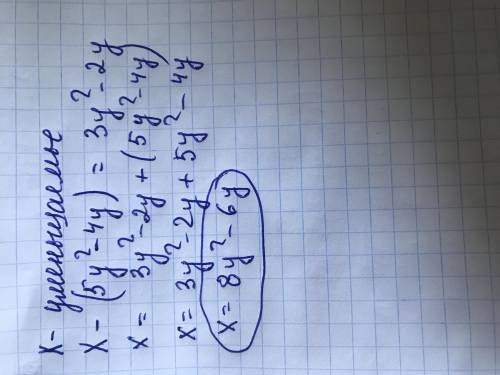 x - уменьшаемые
x - (5y² - 4y) = 3y² - 2y
x = 3y² - 2y + (5y² - 4y)
x = 3y² - 2y + 5y² - 4y
x = 8y² - 6y